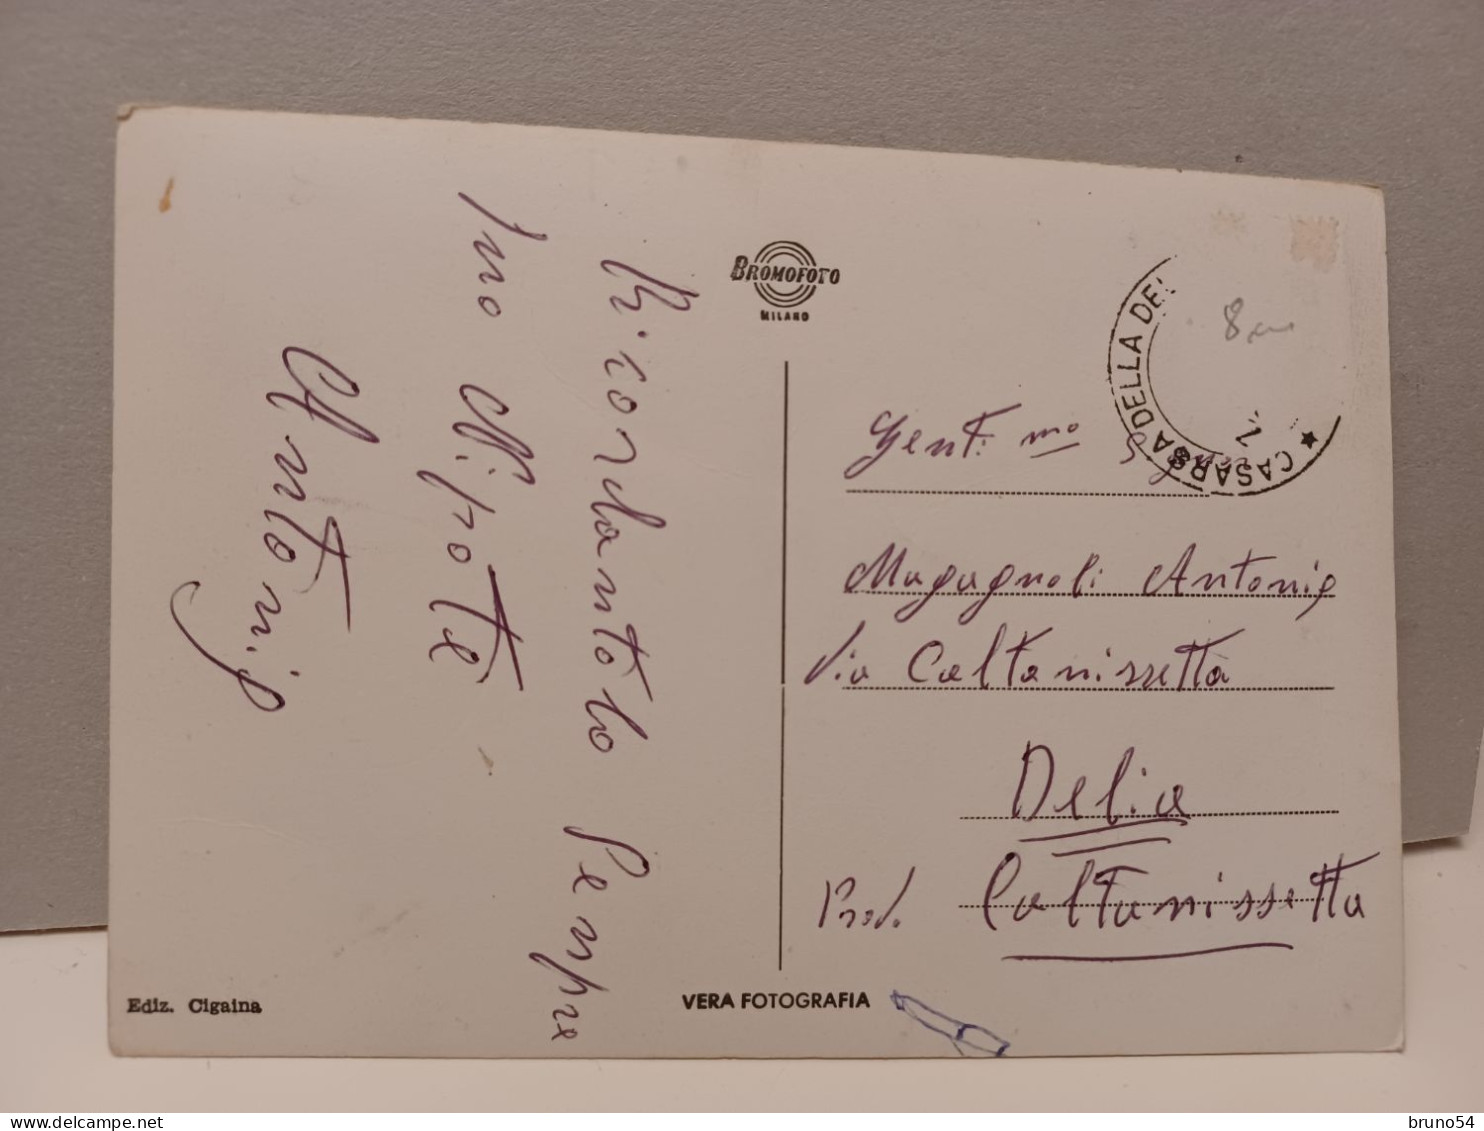 BROMOFOTO
MILANO
Ricordantolo Sempre
suo Nipote
Antonio
CASARSA DELLA DEL
8
Gent.mo
Magagnoli Antonio
Via Caltanissetta
Delia
Prov. Caltanissetta
Ediz. Cigaina
VERA FOTOGRAFIA
www.delcampe.net
bruno54